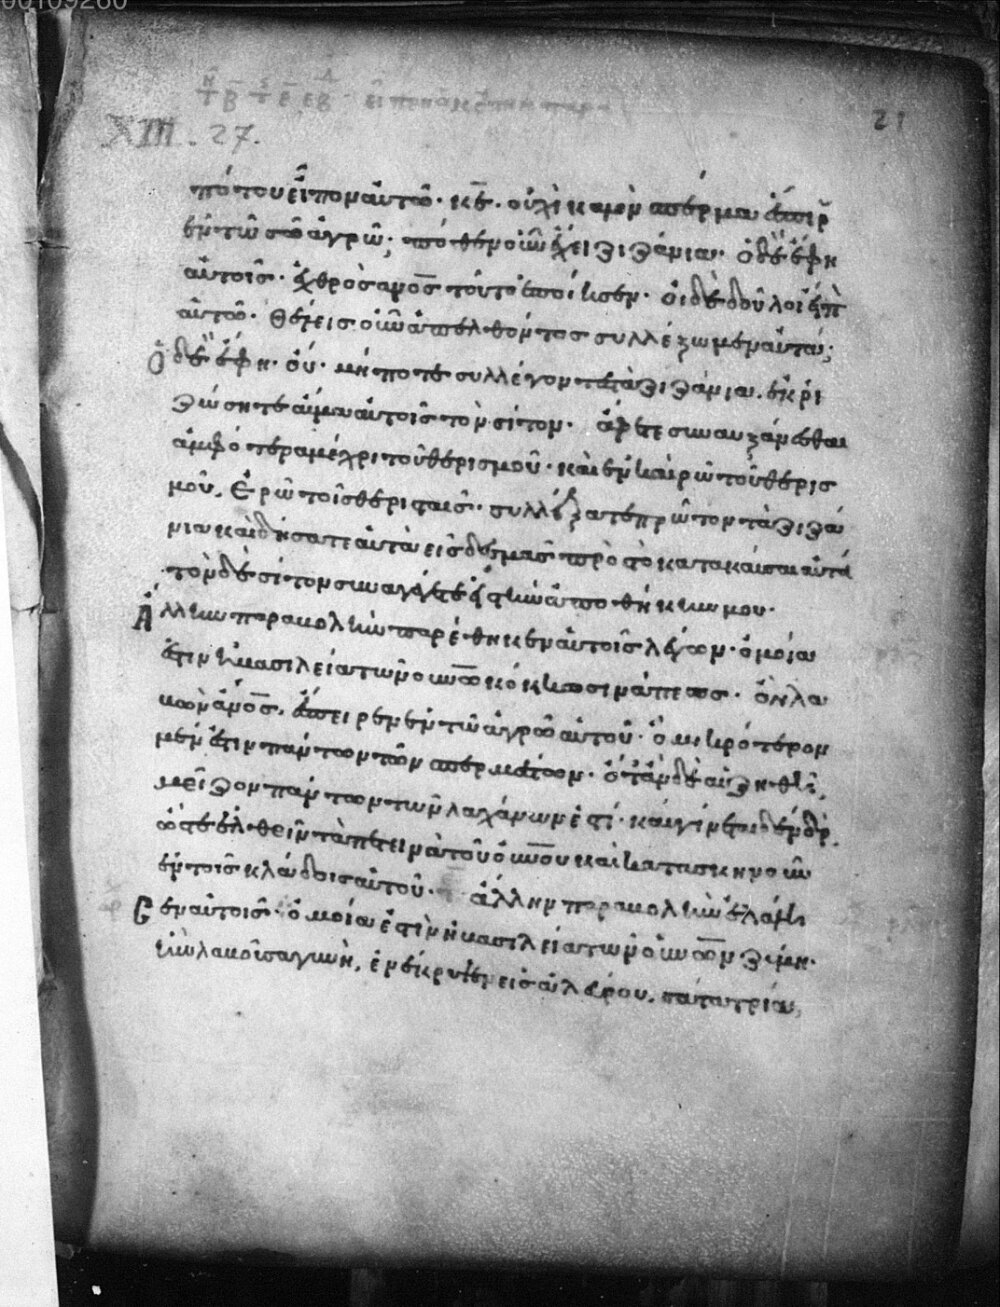 00109260
21
XIII. 27.
πότου εἶπον αὐτῶ· κε. οὐχὶ καλὸν σπέρμα ἔσπειρ
ἐν τῶ σῶ ἀγρῶ; πόθεν οὖν ἔχει ζιζάνια· ὁ δὲ ἔφη
αὐτοῖς· ἐχθρὸς ανος τοῦτο ἐποίησεν· οἱ δὲ δοῦλοι εἶπ
αὐτῶ· θέλεις οὖν ἀπελθόντες συλλέξωμεν αὐτά;
Ὁ δὲ ἔφη· οὔ· μήποτε συλλέγοντες τὰ ζιζάνια. ἐκρι
ζώσητε ἅμα αὐτοῖς τὸν σίτον· ἄφετε συναυξάνεσθαι
ἀμφότερα μέχρι τοῦ θερισμοῦ· καὶ ἐν καιρῶ τοῦ θερισ
μοῦ, ἐρῶ τοῖς θερισταῖς· συλλέξατε πρῶτον τὰ ζιζά
νια καὶ δήσατε αὐτὰ εἰς δεσμὰς πρὸς τὸ κατακαῦσαι αὐτά
τὸν δὲ σίτον συναγάγετε εἰς τὴν ἀποθήκην μου·
Ἄλλην παραβολὴν παρέθηκεν αὐτοῖς λέγων· ὁμοία
ἐστιν ἡ βασιλεία τῶν οὐνῶν κόκκω σινάπεως· ὃν λα
βὼν ανος, ἔσπειρεν ἐν τῶ ἀγρῶ αὐτοῦ· ὃ μικρότερον
μέν ἐστιν πάντων τῶν σπερμάτων· ὅταν δὲ αὐξηθῆ,
μεῖζον πάντων τῶν λαχάνων ἐστί· καὶ γίνεται δένδρ.
ὥστε ἐλθεῖν τὰ πετεινὰ τοῦ οὐνοῦ καὶ κατασκηνοῦν
ἐν τοῖς κλάδοις αὐτοῦ· ἄλλην παραβολὴν ἐλάλη
σεν αὐτοῖς· ὁμοία ἐστὶν ἡ βασιλεία τῶν οὐνῶν ζύμη·
ἣν λαβοῦσα γυνὴ, ἐνέκρυψεν εἰς ἀλεύρου, σάτα τρία,